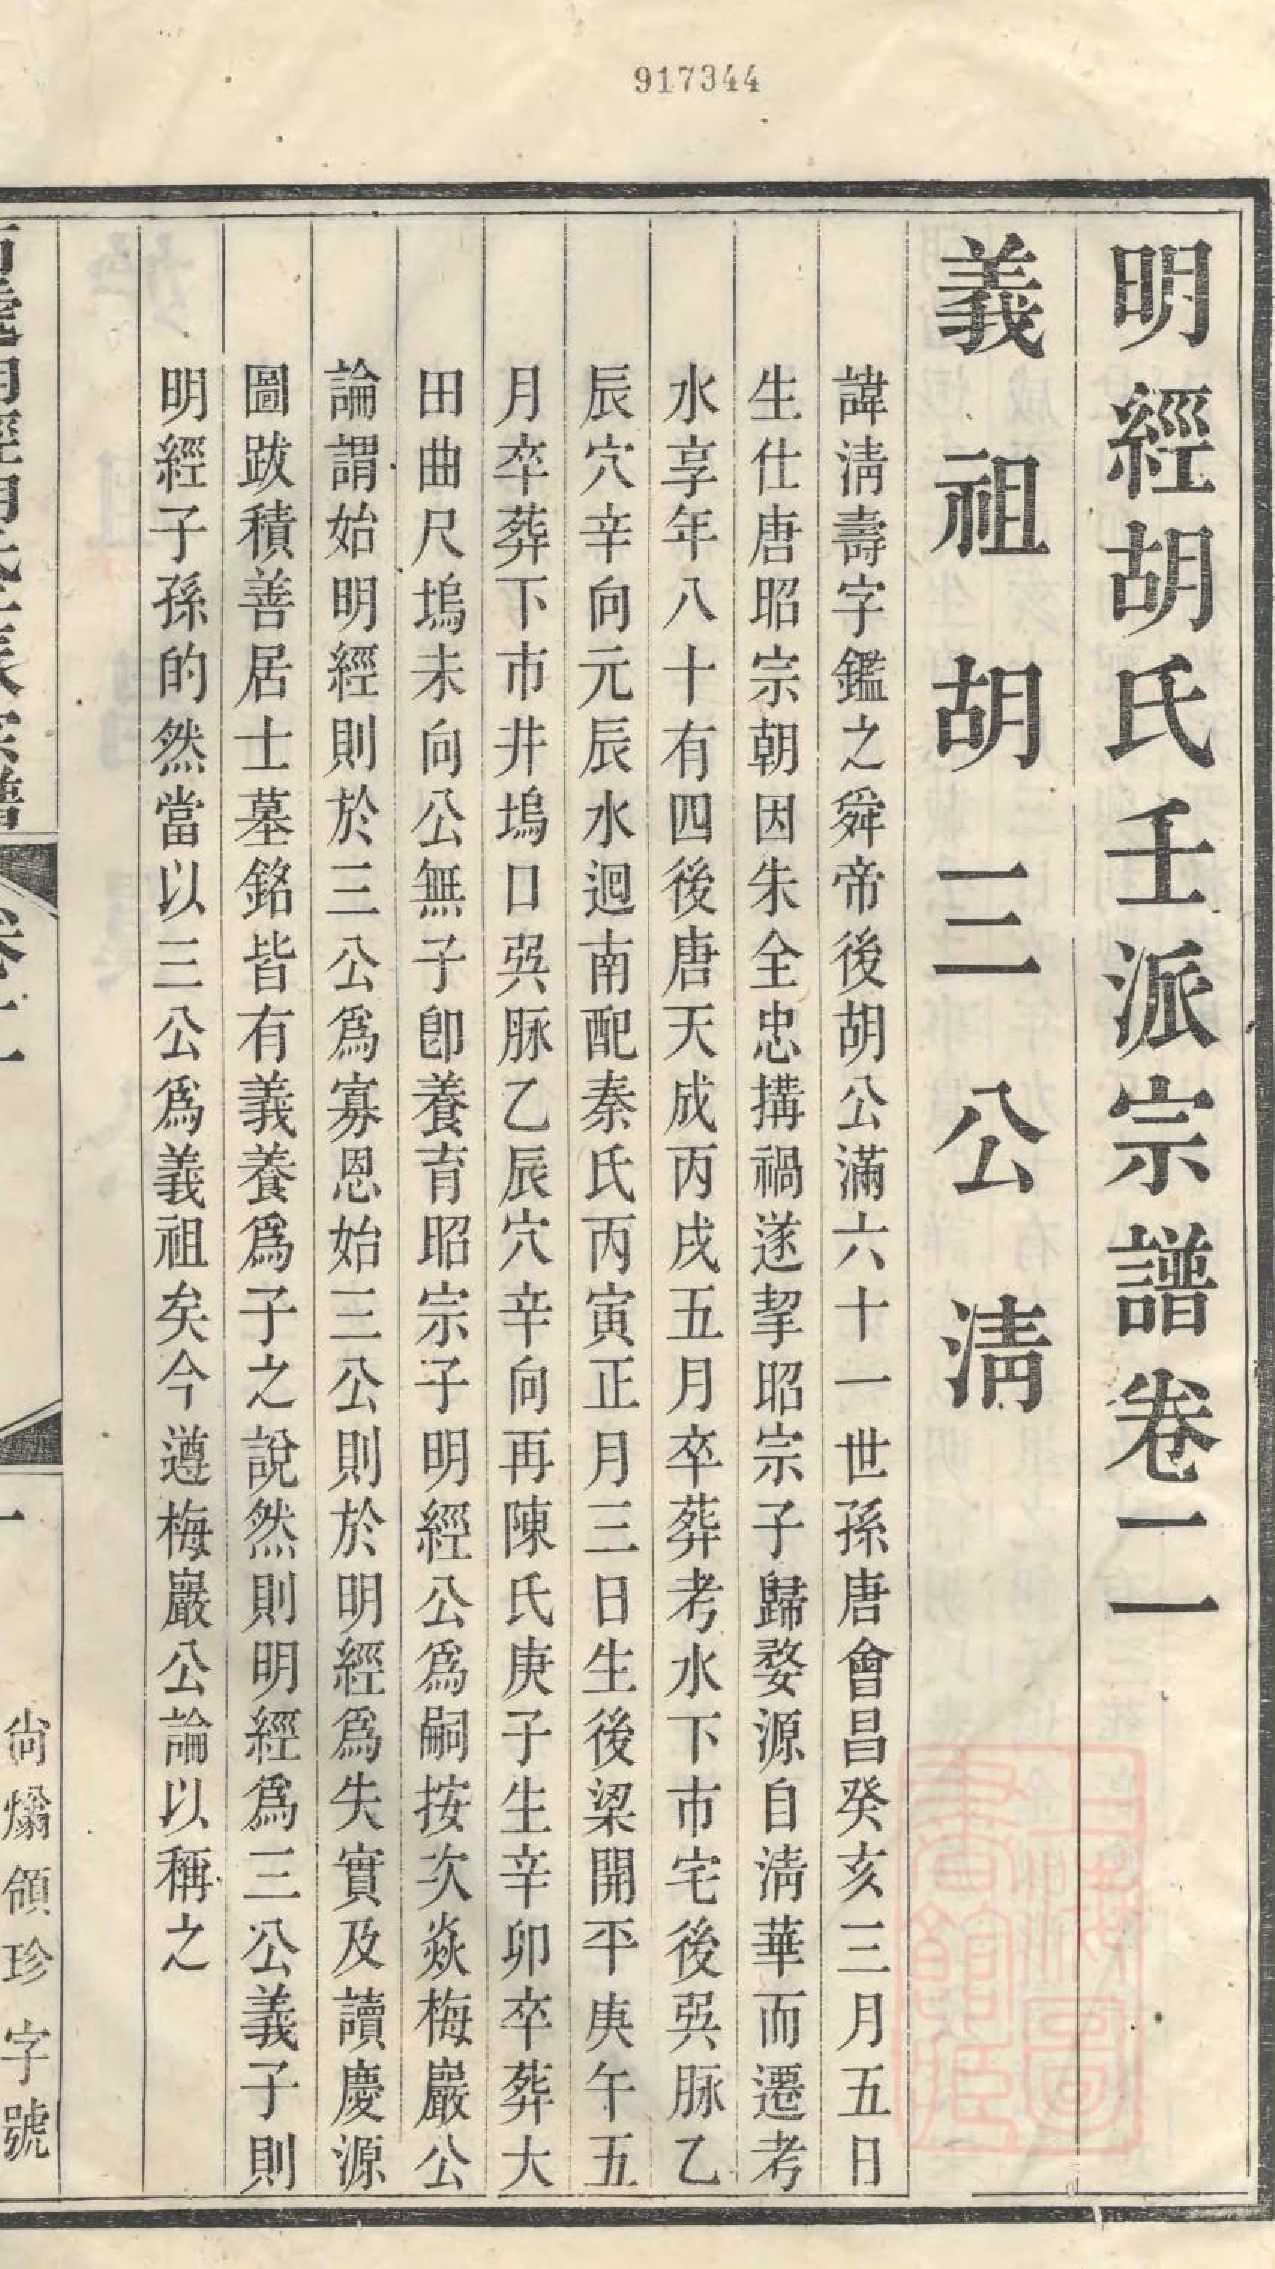 917344
明經胡氏壬派宗譜卷二
義祖胡三公清
諱清壽字鑑之舜帝後胡公滿六十一世孫唐會昌癸亥三月五日
生仕唐昭宗朝因朱全忠搆禍遂挈昭宗子歸婺源自清華而遷考
水享年八十有四後唐天成丙戌五月卒葬考水下市宅後巽脉乙
辰穴辛向元辰水迴南配秦氏丙寅正月三日生後梁開平庚午五
月卒葬下市井塢口巽脉乙辰穴辛向再陳氏庚子生辛卯卒葬大
田曲尺塢未向公無子卽養育昭宗子明經公爲嗣按次焱梅巖公
論謂始明經則於三公爲寡恩始三公則於明經爲失實及讀慶源
圖跋積善居士墓銘皆有義養爲子之說然則明經爲三公義子則
明經子孫的然當以三公爲義祖矣今遵梅巖公論以稱之
明經胡氏壬派宗譜
卷二
一
尙爚領珍字號